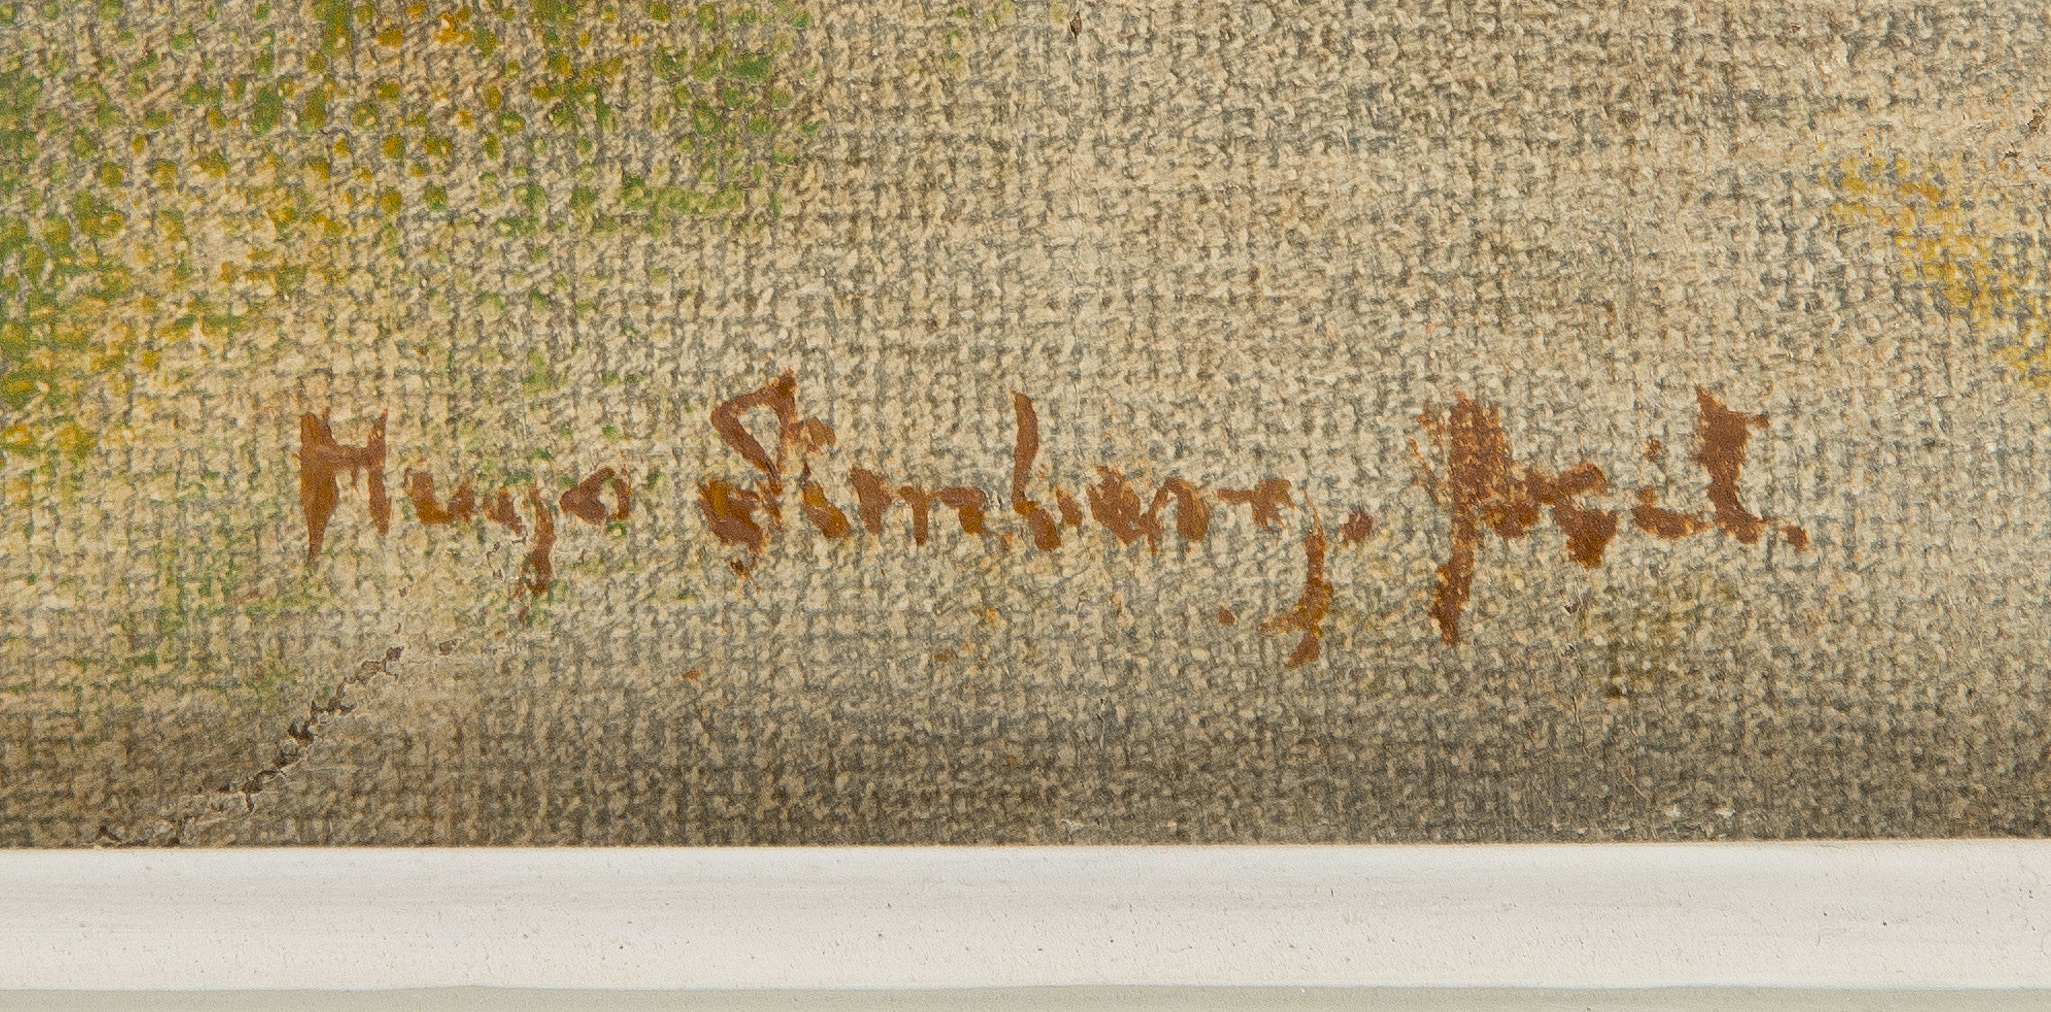 Hugo Simberg, pair.